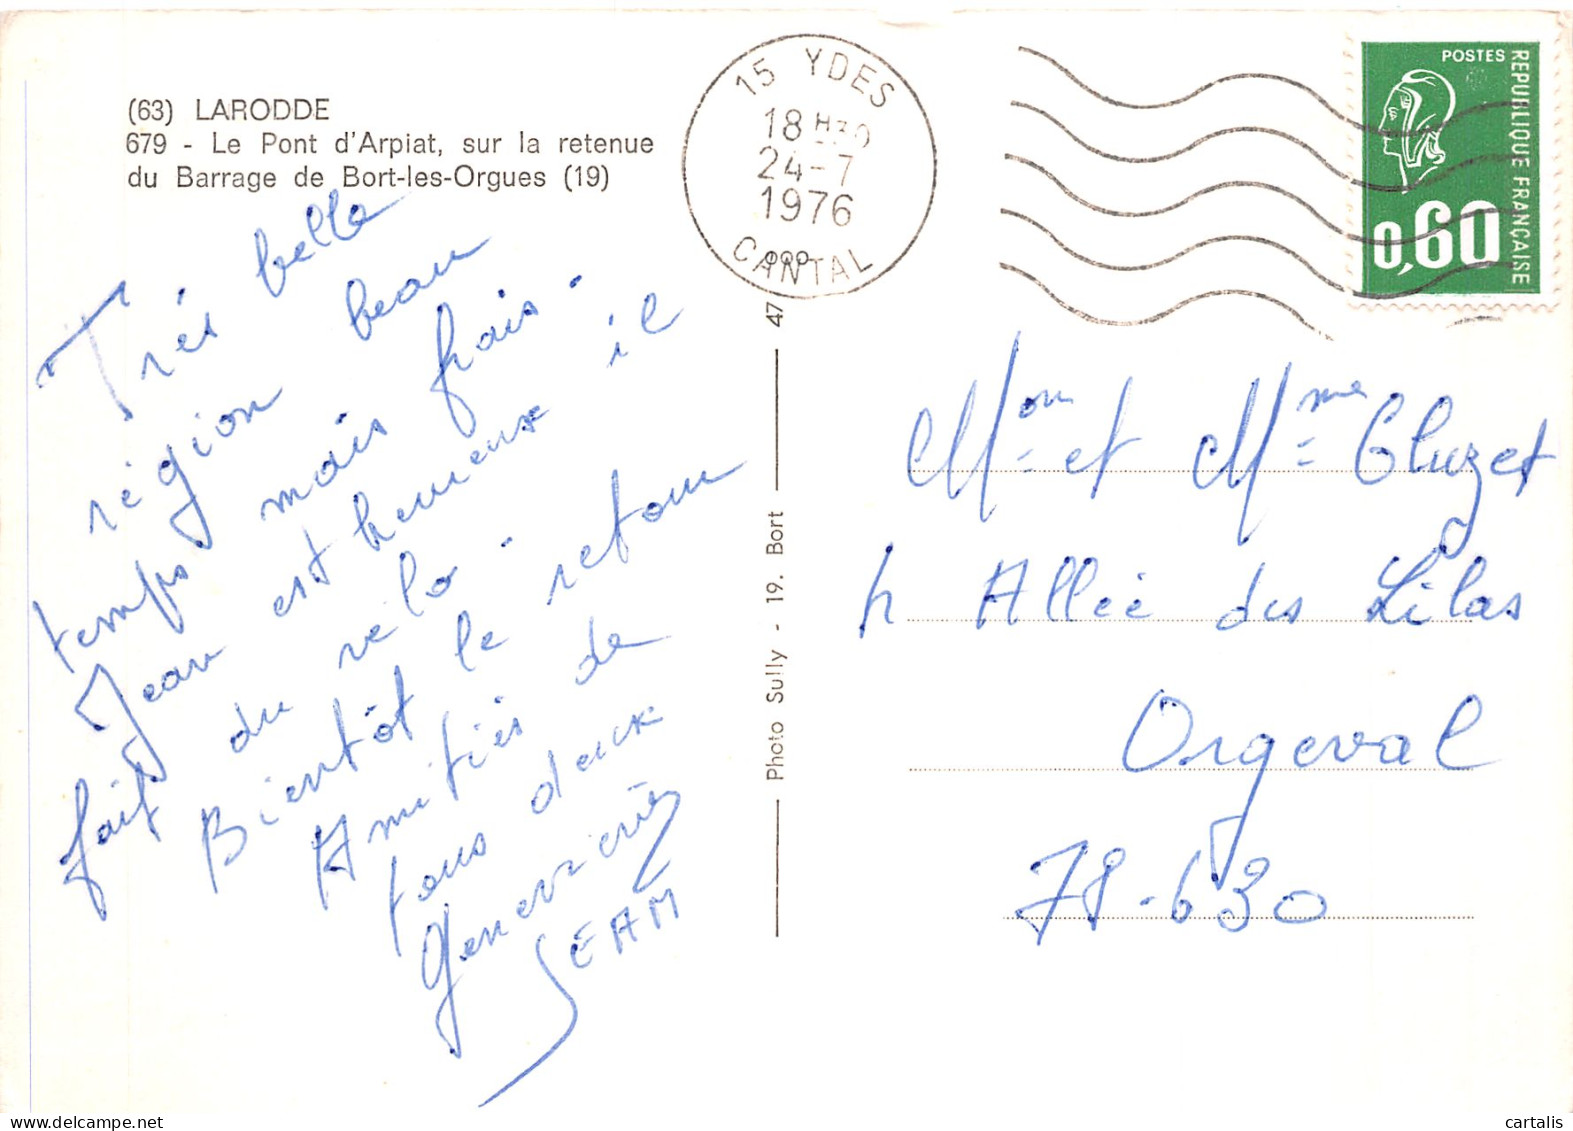 (63) LARODDE
679 - Le Pont d'Arpiat, sur la retenue
du Barrage de Bort-les-Orgues (19)
Très belle
région beau
temps mais frais.
Jean est heureux il
fait du vélo.
Bientôt le retour
Amitiés de
tous deux
Geneviève
JEAN
Photo Sully - 19. Bort
47
15 YDES
18 H30
24-7
1976
CANTAL
POSTES
REPUBLIQUE FRANÇAISE
0,60
Mon et Mme Cluzet
4 Allée des Lilas
Orgeval
78-630
cartalis
delcampe.net